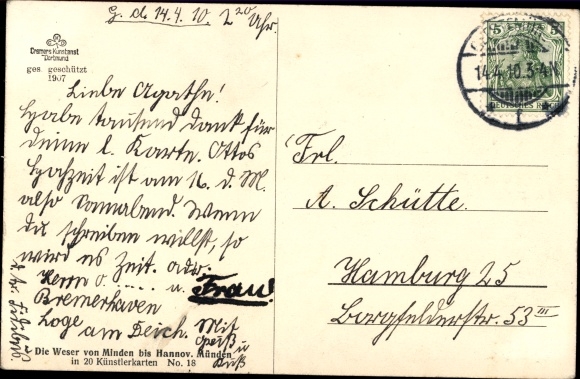 G. d. 14.4.10. 2²⁰ Uhr.
Cramers Kunstanst
Dortmund
ges. geschützt
1907
Liebe Agathe!
Habe tausend Dank für
deine l. Karte. Ottos
Hochzeit ist am 16. d. M.
also Sonnabend. Wenn
du schreiben willst, so
wird es Zeit. adr.
Herrn O. ..... u. Frau!
Bremerhaven
Loge
am Deich. Mit
Gruß
u
Kuß
Die Weser von Minden bis Hannov. Münden
in 20 Künstlerkarten No. 18
5 5
14.4.10.3-4N
DEUTSCHES REICH
Frl.
A. Schütte.
Hamburg 25
Borgfelderstr. 53 III